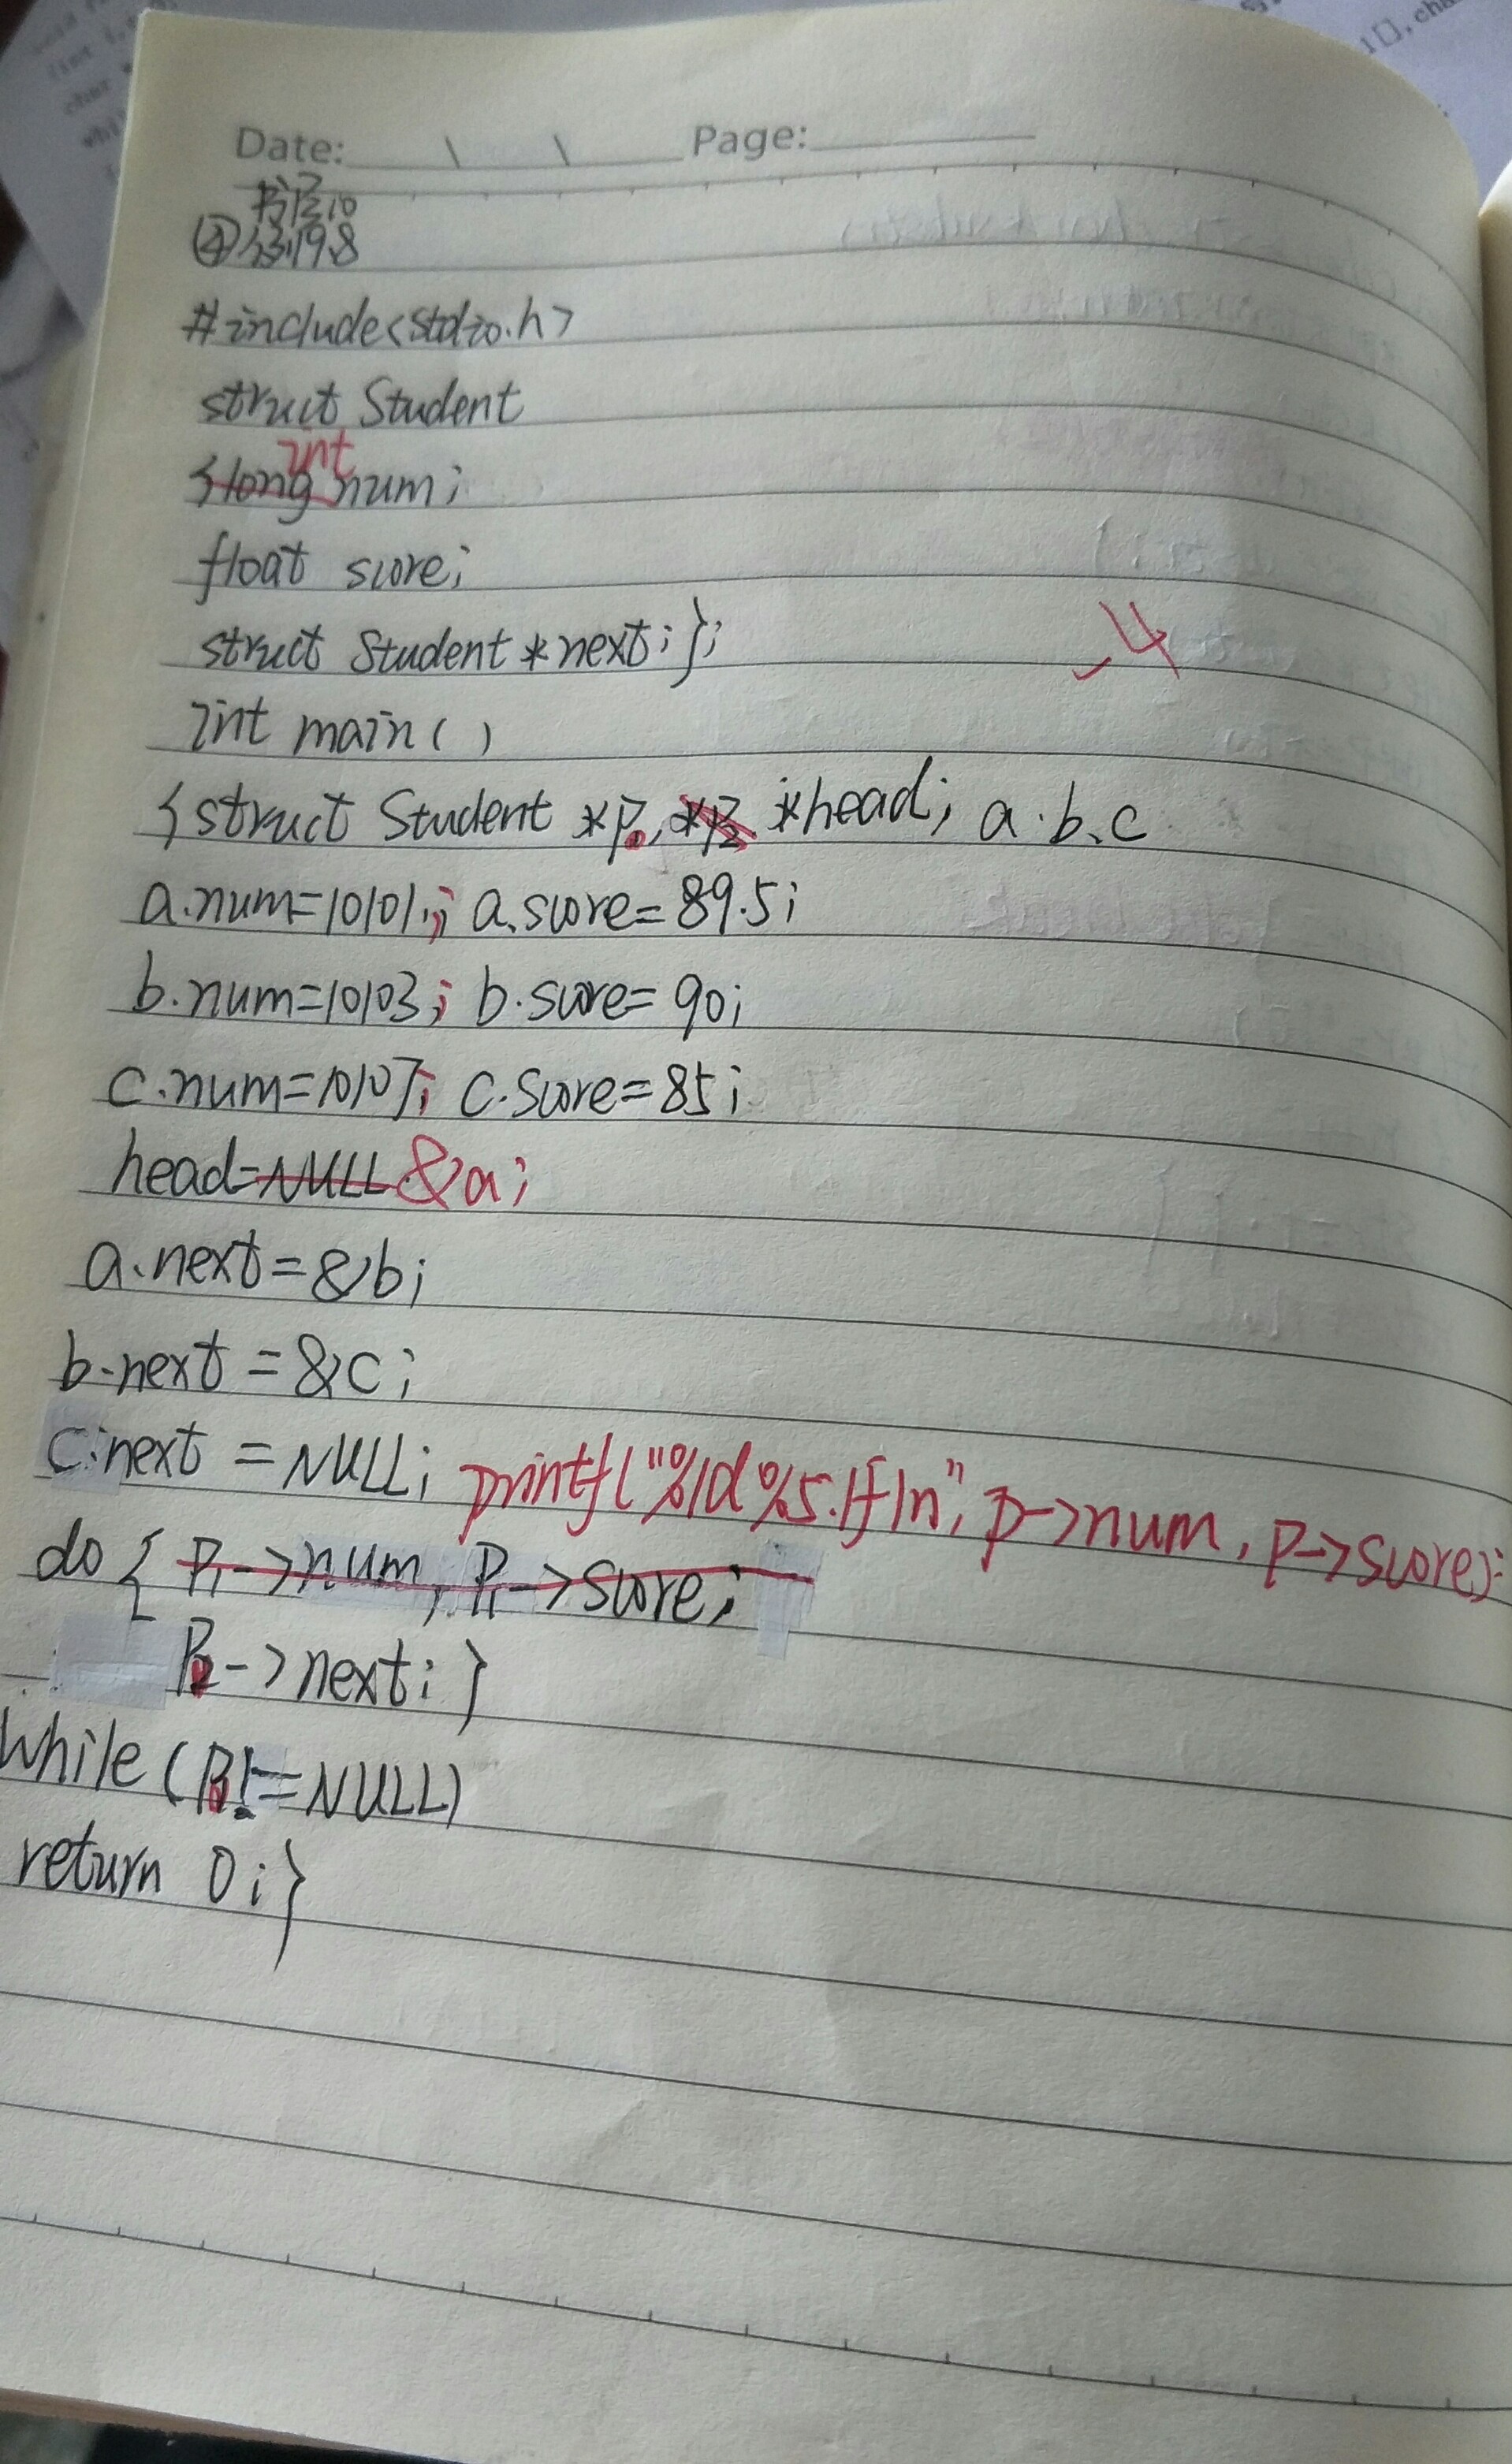 Date: \ \ Page:
④例9.8
#include<stdio.h>
struct Student
{long int num;
float score;
struct Student *next;};
-4
int main()
{struct Student *P, *P2 *head; a.b、c
a.num=10101; a.score=89.5;
b.num=10103; b.score=90;
c.num=10107; c.score=85;
head=NULL &a;
a.next=&b;
b.next=&c;
c.next=NULL; printf("%ld%5.1f\n", p->num, p->score);
do{ P1->num, P1->score;
P2->next;}
while(P1!=NULL)
return 0;}